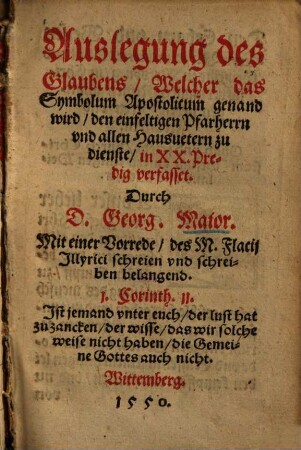 Auslegung des
Glaubens / Welcher das
Symbolum Apostolicum genand
wird / den einfeltigen Pfarherrn
vnd allen Hausuetern zu
dienste / in XX. Pre-
dig verfasset.
Durch
D. Georg. Maior.
Mit einer Vorrede / des M. Flacij
Jllyrici schreien vnd schrei-
ben belangend.
1. Corinth. 11.
Jst jemand vnter euch / der lust hat
zu zancken / der wisse / das wir solche
weise nicht haben / die Gemei-
ne Gottes auch nicht.
Wittemberg.
1550.